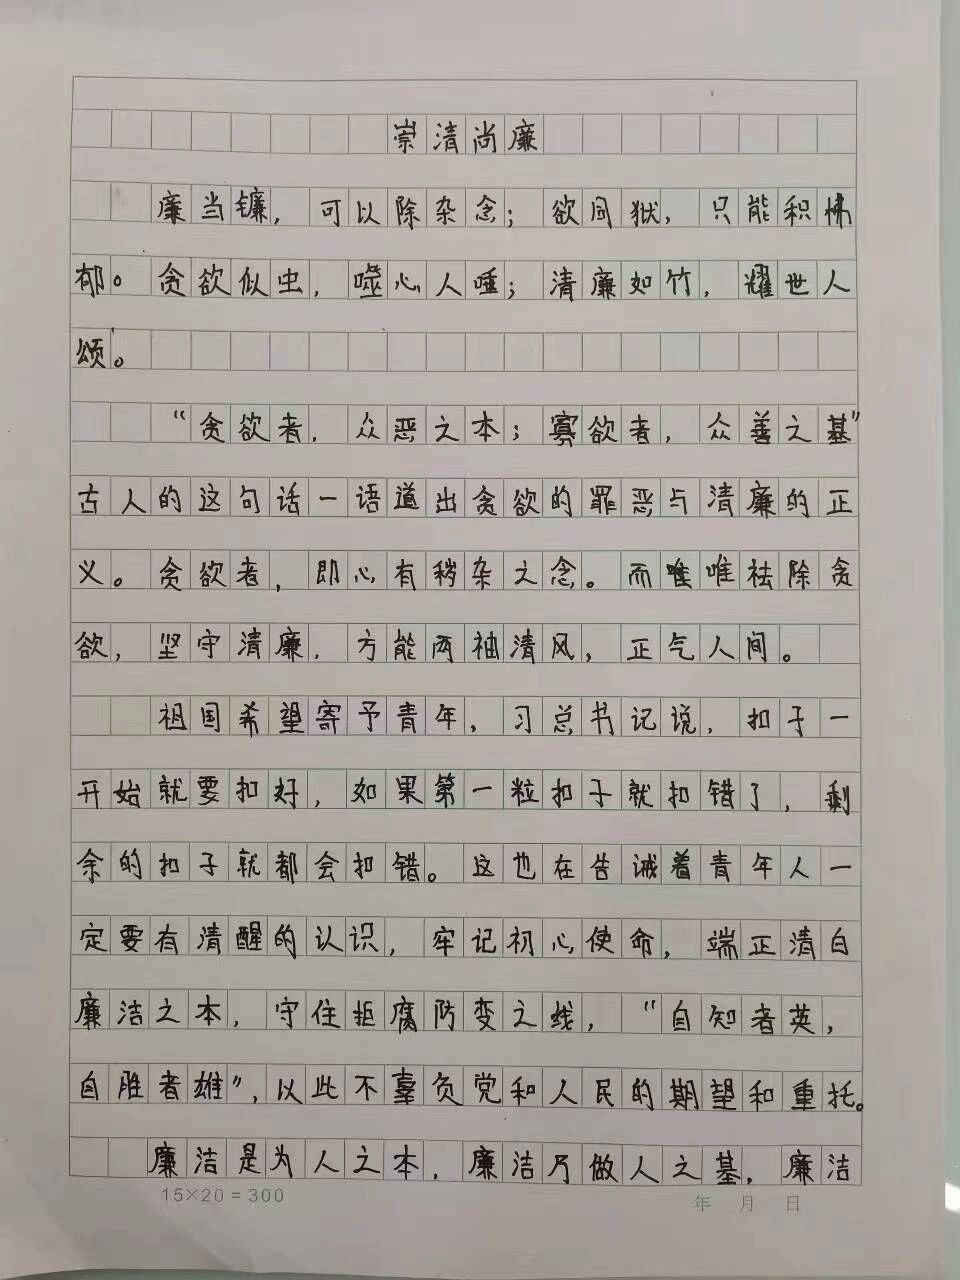 崇清尚廉
廉当镰，可以除杂念；欲同狱，只能积怫
郁。贪欲似虫，噬心人唾；清廉如竹，耀世人
颂。
“贪欲者，众恶之本；寡欲者，众善之基”
古人的这句话一语道出贪欲的罪恶与清廉的正
义。贪欲者，即心有秽杂之念。而唯唯祛除贪
欲，坚守清廉，方能两袖清风，正气人间。
祖国希望寄予青年，习总书记说，扣于一
开始就要扣好，如果第一粒扣子就扣错了，剩
余的扣子就都会扣错。这也在告诫着青年人一
定要有清醒的认识，牢记初心使命，端正清白
廉洁之本，守住拒腐防变之线，“自知者英，
自胜者雄”，以此不辜负党和人民的期望和重托。
廉洁是为人之本，廉洁乃做人之基，廉洁
15×20=300
年 月 日